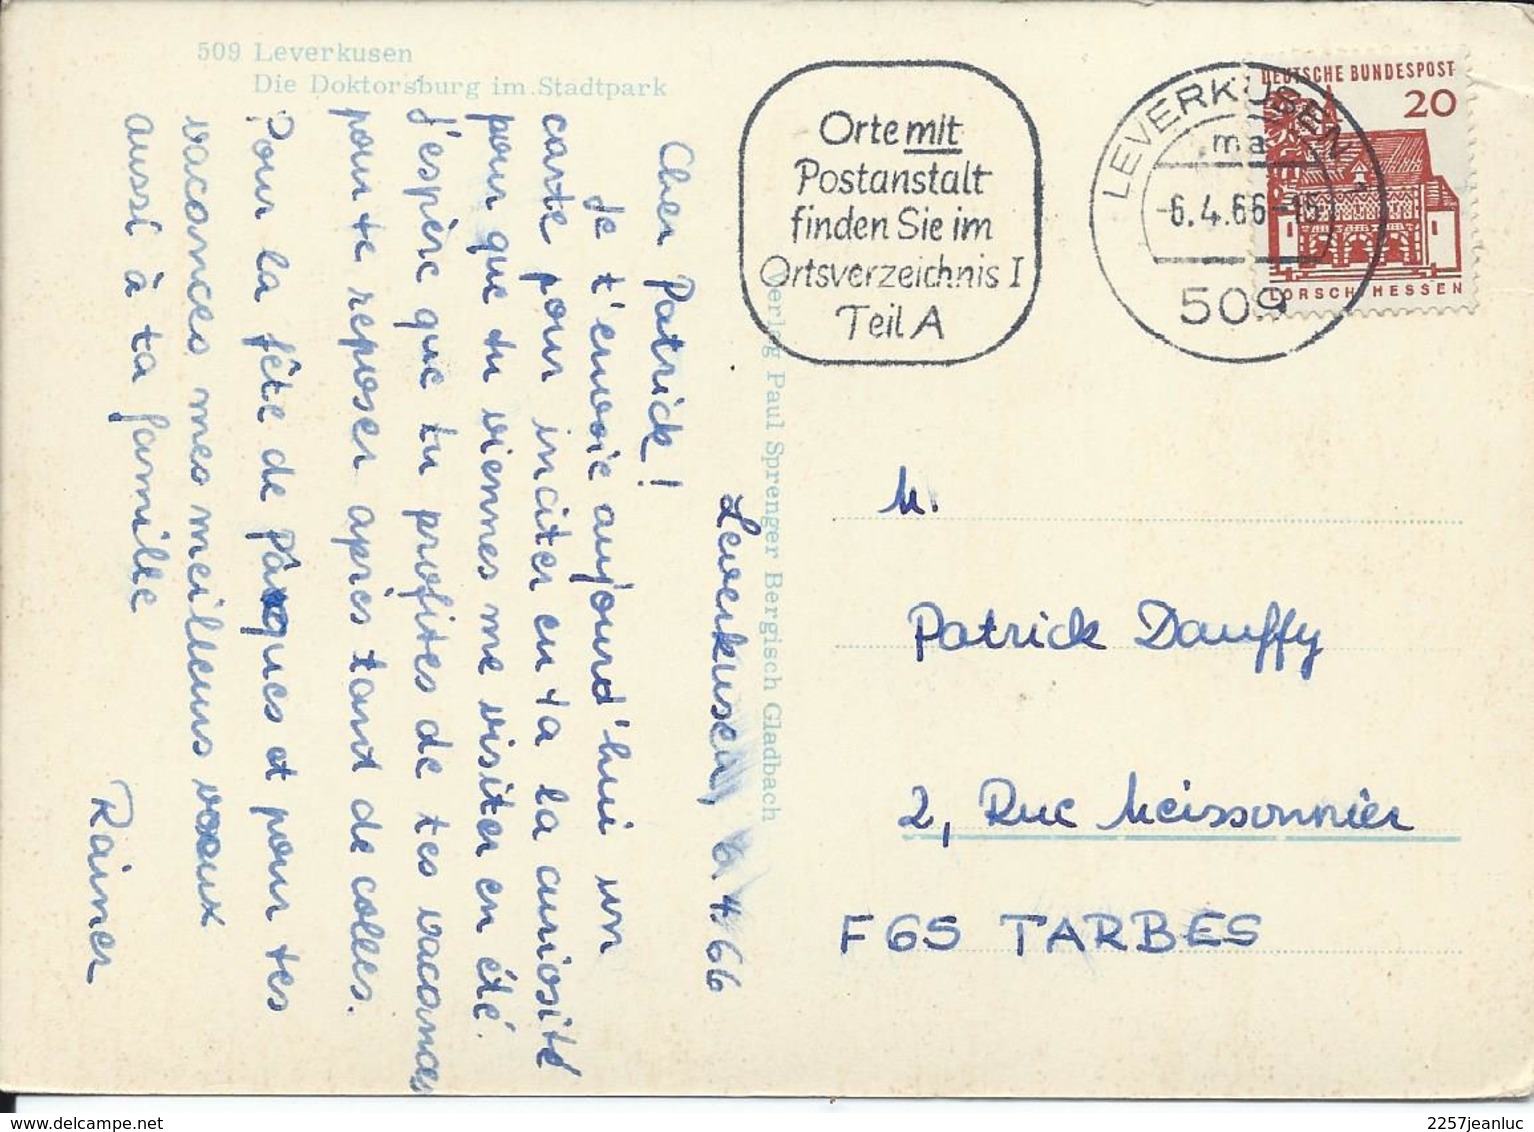 509 Leverkusen
Die Doktorsburg im Stadtpark
Leverkusen, 6.4.66
Cher Patrick!
Je t'envoie aujourd'hui un
carte pour inciter en ta la curiosité
pour que tu viennes me visiter en été.
J'espère que tu profites de tes vacances
pour te reposer après tant de colles.
Pour la fête de pâques et pour tes
vacances mes meilleurs voeux
aussi à ta famille
Rainer
Verlag Paul Sprenger Bergisch Gladbach
Orte mit
Postanstalt
finden Sie im
Ortsverzeichnis I
Teil A
LEVERKUSEN 1
ma
-6.4.66-18
509
DEUTSCHE BUNDESPOST
20
LORSCH HESSEN
M.
Patrick Dauffy
2, Rue Meissonnier
F 65 TARBES
2257jeanluc